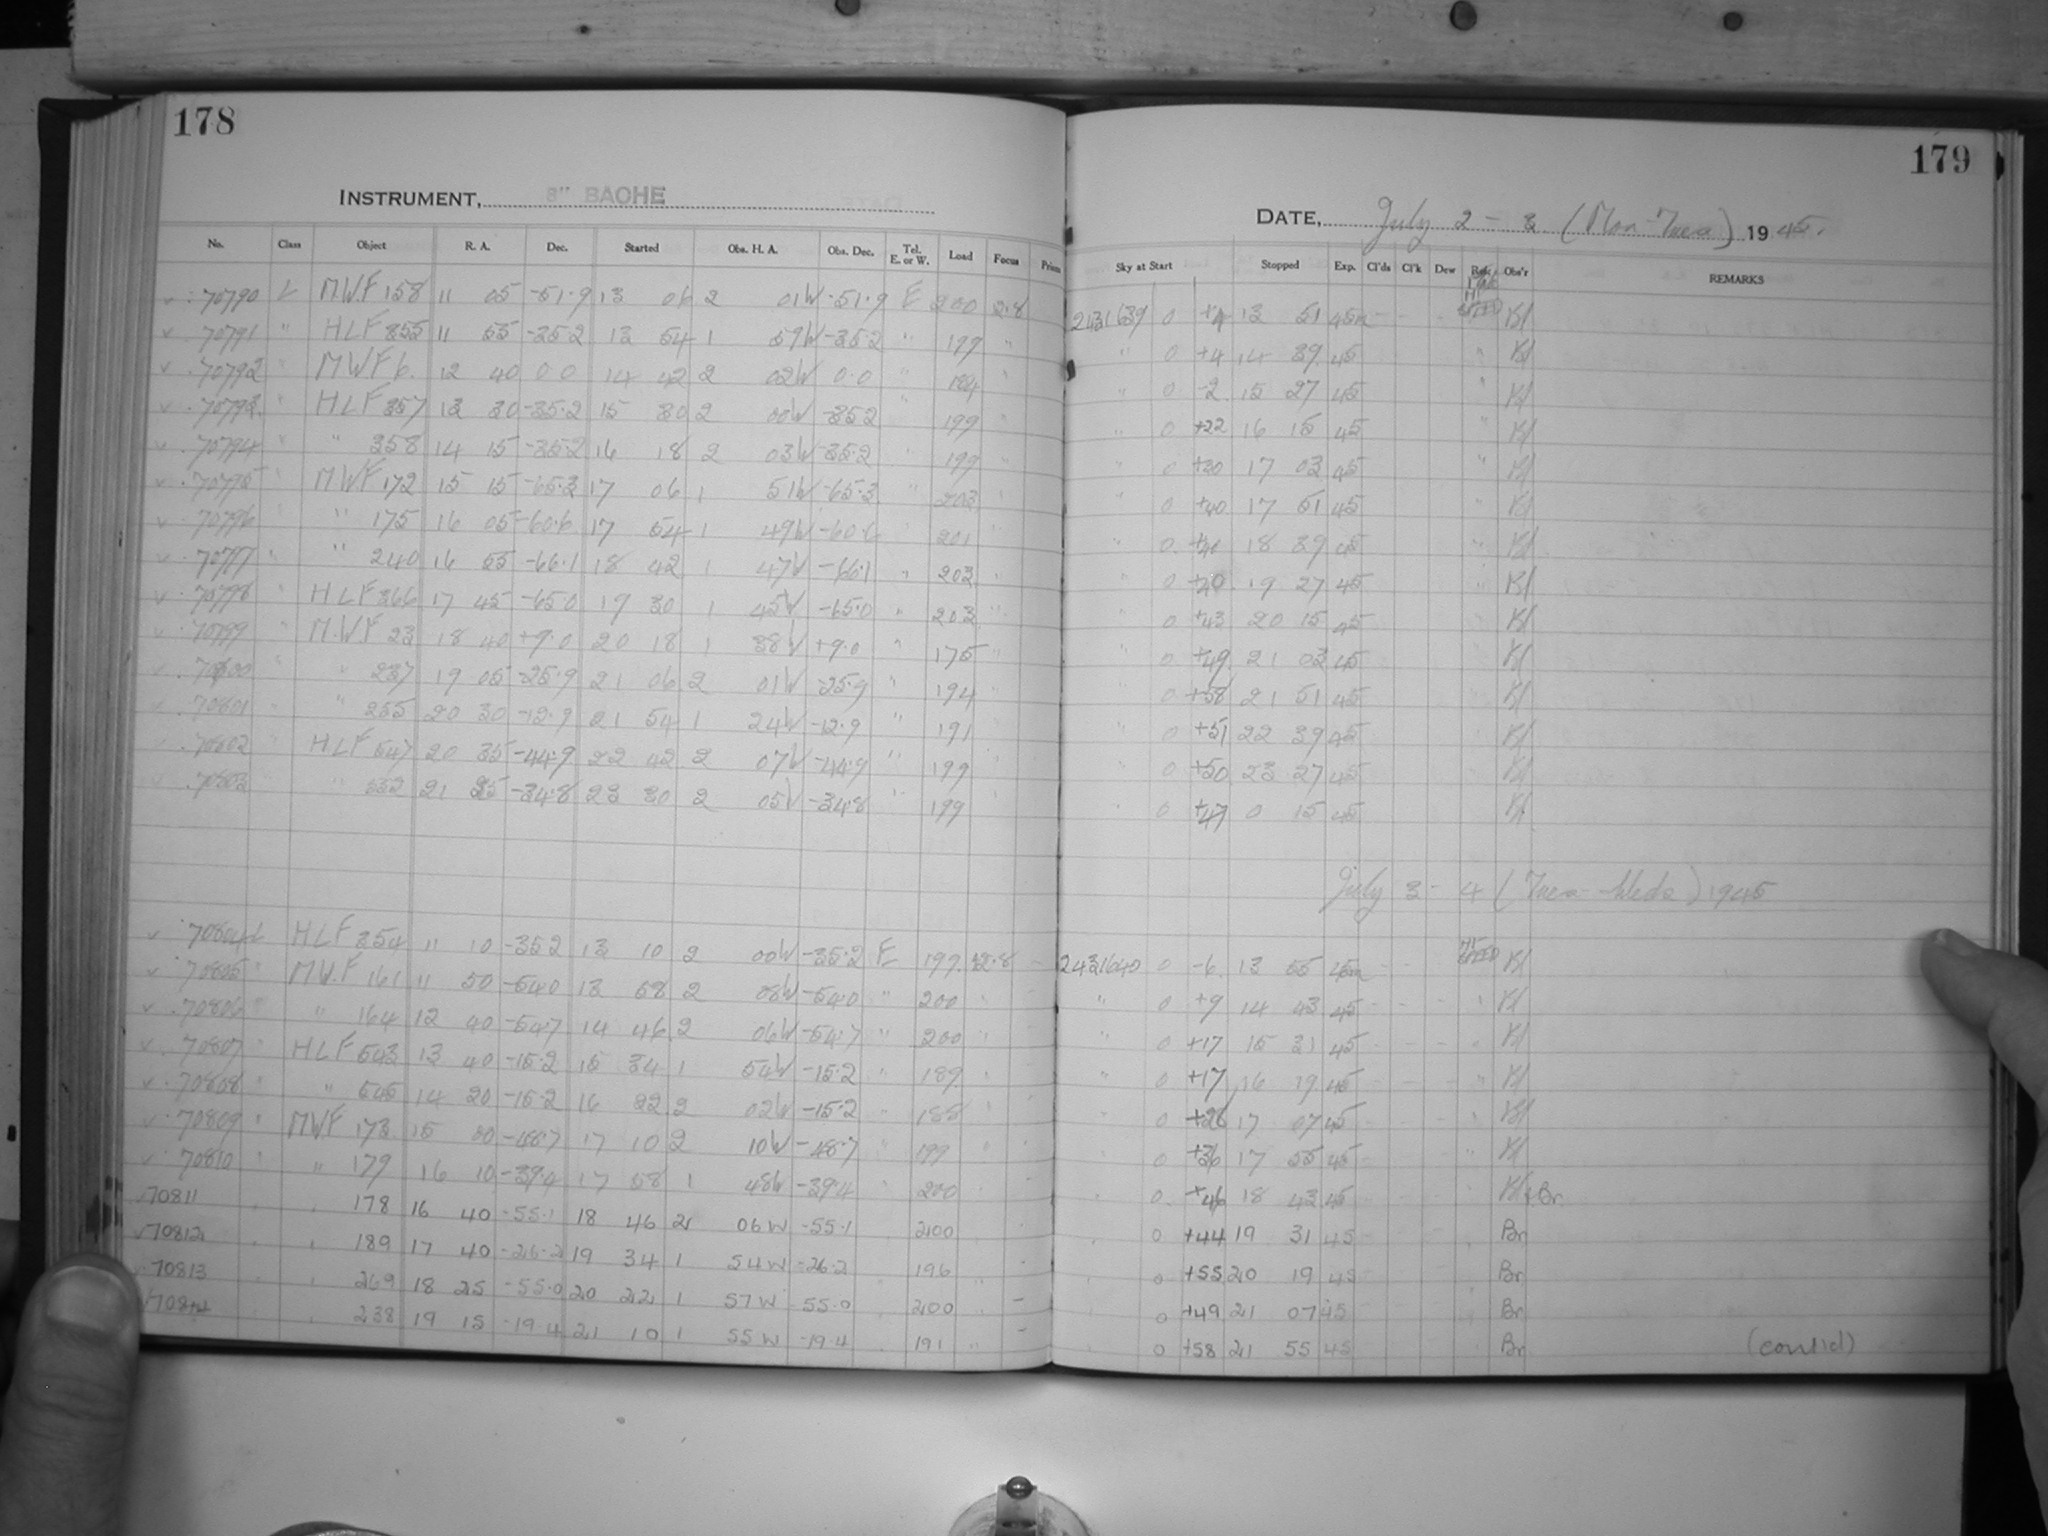 178
INSTRUMENT, 8" BACHE
No. Class Object R. A. Dec. Started Obs. H. A. Obs. Dec. Tel. E. or W. Load Focus Prism
70790 L MWF 158 11 05 -51.9 13 06 2 01W -51.9 E 200 12.8
70791 " HLF 355 11 55 -35.2 13 54 1 59W -35.2 " 199 "
70792 " MWF 6. 12 40 0.0 14 42 2 02W 0.0 " 184 "
70793 " HLF 357 13 30 -35.2 15 30 2 00W -35.2 " 199 "
70794 " " 358 14 15 -35.2 16 18 2 03W -35.2 " 199 "
70795 " MWF 172 15 15 -65.3 17 06 1 51W -65.3 " 203 "
70796 " " 175 16 05 -60.6 17 54 1 49W -60.6 " 201 "
70797 " " 240 16 55 -66.1 18 42 1 47W -66.1 " 203 "
70798 " HLF 366 17 45 -65.0 19 30 1 45W -65.0 " 203 "
70799 " MWF 23 18 40 +9.0 20 18 1 38W +9.0 " 175 "
70800 " " 237 19 05 -25.9 21 06 2 01W -25.9 " 194 "
70801 " " 255 20 30 -12.9 21 54 1 24W -12.9 " 191
70802 " HLF 547 20 35 -44.9 22 42 2 07W -44.9 " 199
70803 " " 332 21 25 -34.8 23 30 2 05W -34.8 " 199
70804 L HLF 354 11 10 -35.2 13 10 2 00W -35.2 E 199 12.8
70805 " MWF 161 11 50 -54.0 13 58 2 08W -54.0 " 200 "
70806 " " 164 12 40 -54.7 14 46 2 06W -54.7 " 200 "
70807 " HLF 543 13 40 -15.2 15 34 1 54W -15.2 " 189 "
70808 " " 545 14 20 -15.2 16 22 2 02W -15.2 " 188 "
70809 " MWF 173 15 00 -48.7 17 10 2 10W -48.7 " 199 "
70810 " " 179 16 10 -39.4 17 58 1 48W -39.4 " 200 "
70811 " " 178 16 40 -55.1 18 46 2 06W -55.1 " 200 "
70812 " " 189 17 40 -26.2 19 34 1 54W -26.2 " 196
70813 " " 269 18 25 -55.0 20 22 1 57W -55.0 " 200 " -
70814 " " 238 19 15 -19.4 21 10 1 55W -19.4 " 191 " -
179
DATE, July 2 - 3 (Mon-Tues) 1945.
Sky at Start Stopped Exp. Cl'ds Cl'k Dew Rec Obs'r REMARKS
2431639 0 +4 13 51 45m - - - Bl
" 0 +4 14 39 45 " Bl
" 0 -2 15 27 45 " Bl
" 0 +22 16 15 45 " Bl
" 0 +30 17 03 45 " Bl
" 0 +40 17 51 45 " Bl
" 0 18 39 45 " Bl
" 0 +40 19 27 45 " Bl
" 0 +43 20 15 45 Bl
" 0 +49 21 03 45 Bl
" 0 +58 21 51 45 Bl
" 0 +51 22 39 45 Bl
" 0 +50 23 27 45 Bl
" 0 +47 0 15 45 Bl
July 3 - 4 (Tues-Weds) 1945
2431640 0 -6 13 55 45m - - Bl
" 0 +9 14 43 45 - - - " Bl
" 0 +17 15 31 45 - - - " Bl
" 0 +17 16 19 45 - - - " Bl
" 0 +26 17 07 45 - - - " Bl
" 0 +36 17 55 45 " Bl
" 0 +46 18 43 45 " Bl & Br
" 0 +44 19 31 45 " Br
" 0 +55 20 19 45 " Br
" 0 +49 21 07 45 " Br
" 0 +58 21 55 45 " Br (cont'd)